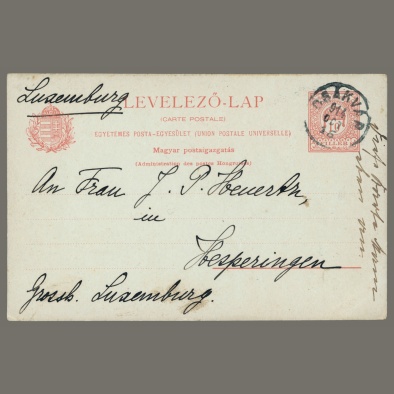 Luxemburg
LEVELEZŐ-LAP
(CARTE POSTALE)
EGYETEMES POSTA-EGYESÜLET (UNION POSTALE UNIVERSELLE)
Magyar postaigazgatás
(Administration des postes Hongroises)
An Frau J. P. Heuertz,
in
Hesperingen
Grossh. Luxemburg.